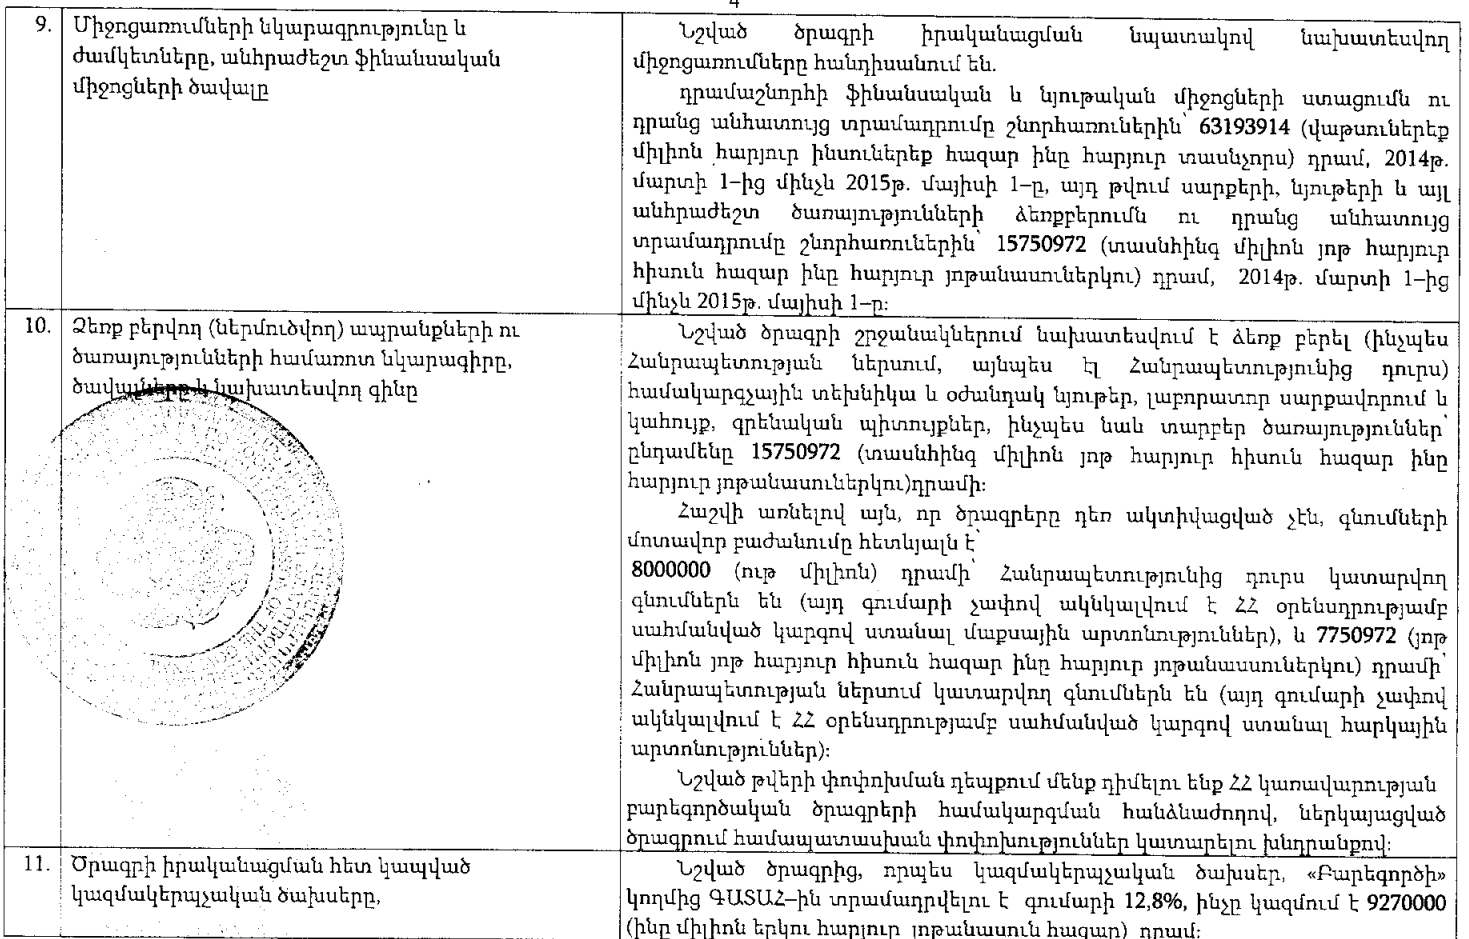 4
9. Միջոցառումների նկարագրությունը և
ժամկետները, անհրաժեշտ ֆինանսական
միջոցների ծավալը
Նշված ծրագրի իրականացման նպատակով նախատեսվող
միջոցառումները հանդիսանում են.
դրամաշնորհի ֆինանսական և նյութական միջոցների ստացումն ու
դրանց անհատույց տրամադրումը շնորհառուներին՝ 63193914 (վաթսուներեք
միլիոն հարյուր ինսուներեք հազար ինը հարյուր տասնչորս) դրամ, 2014թ.
մարտի 1–ից մինչև 2015թ. մայիսի 1–ը, այդ թվում սարքերի, նյութերի և այլ
անհրաժեշտ ծառայությունների ձեռքբերումն ու դրանց անհատույց
տրամադրումը շնորհառուներին՝ 15750972 (տասնհինգ միլիոն յոթ հարյուր
հիսուն հազար ինը հարյուր յոթանասուներկու) դրամ, 2014թ. մարտի 1–ից
մինչև 2015թ. մայիսի 1–ը:
10. Ձեռք բերվող (ներմուծվող) ապրանքների ու
ծառայությունների համառոտ նկարագիրը,
ծավալները և նախատեսվող գինը
Նշված ծրագրի շրջանակներում նախատեսվում է ձեռք բերել (ինչպես
Հանրապետության ներսում, այնպես էլ Հանրապետությունից դուրս)
համակարգչային տեխնիկա և օժանդակ նյութեր, լաբորատոր սարքավորում և
կահույք, գրենական պիտույքներ, ինչպես նաև տարբեր ծառայություններ՝
ընդամենը 15750972 (տասնհինգ միլիոն յոթ հարյուր հիսուն հազար ինը
հարյուր յոթանասուներկու)դրամի:
Հաշվի առնելով այն, որ ծրագրերը դեռ ակտիվացված չէն, գնումների
մոտավոր բաժանումը հետևյալն է՝
8000000 (ութ միլիոն) դրամի՝ Հանրապետությունից դուրս կատարվող
գնումներն են (այդ գումարի չափով ակնկալվում է ՀՀ օրենսդրությամբ
սահմանված կարգով ստանալ մաքսային արտոնություններ), և 7750972 (յոթ
միլիոն յոթ հարյուր հիսուն հազար ինը հարյուր յոթանասսուներկու) դրամի՝
Հանրապետության ներսում կատարվող գնումներն են (այդ գումարի չափով
ակնկալվում է ՀՀ օրենսդրությամբ սահմանված կարգով ստանալ հարկային
արտոնություններ):
Նշված թվերի փոփոխման դեպքում մենք դիմելու ենք ՀՀ կառավարության
բարեգործական ծրագրերի համակարգման հանձնաժողով, ներկայացված
ծրագրում համապատասխան փոփոխություններ կատարելու խնդրանքով:
11. Ծրագրի իրականացման հետ կապված
կազմակերպչական ծախսերը,
Նշված ծրագրից, որպես կազմակերպչական ծախսեր, «Բարեգործի»
կողմից ԳԱՏԱՀ–ին տրամադրվելու է գումարի 12,8%, ինչը կազմում է 9270000
(ինը միլիոն երկու հարյուր յոթանասուն հազար) դրամ: